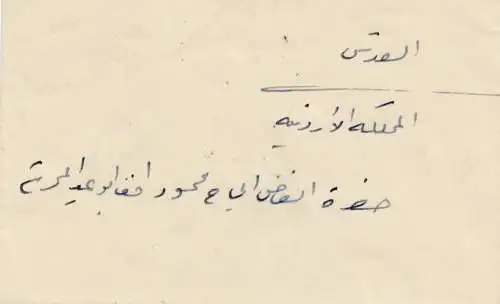 القدس
المملكة الأردنية
حضرة الفاضل الحاج محمود افندي عيد المحترم